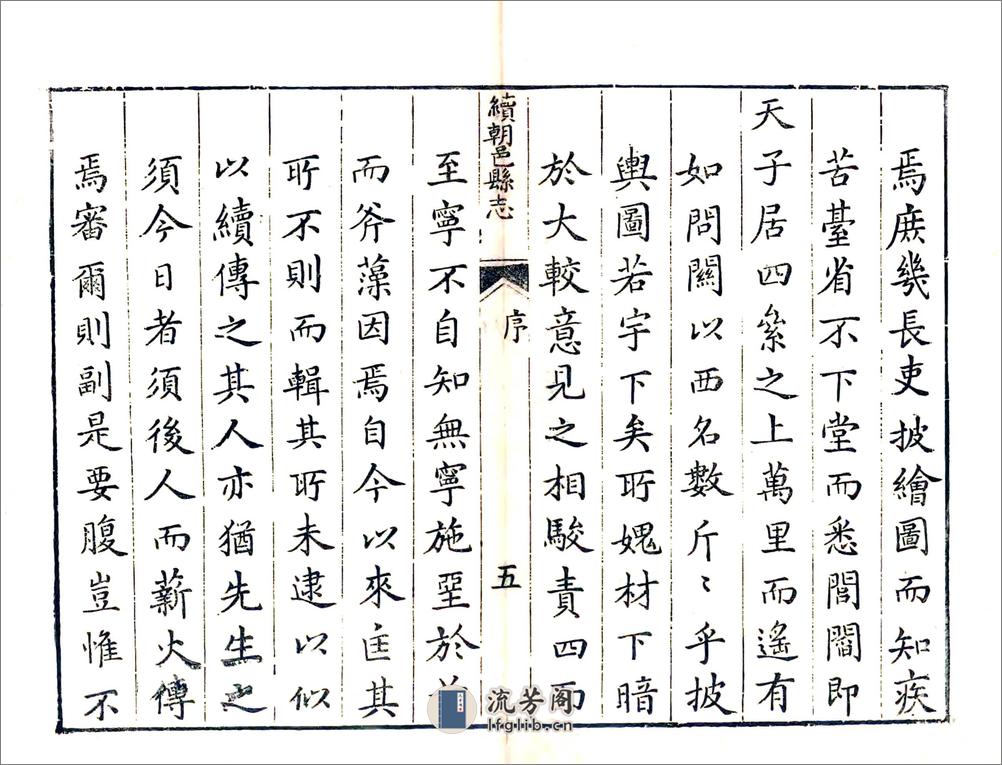 焉庶幾長吏披繪圖而知疾
苦臺省不下堂而悉閭閻即
天子居四絫之上萬里而遙有
如問關以西名數斤〻乎披
輿圖若宇下矣所媿材下暗
於大較意見之相駮責四面
續朝邑縣志
序
五
至寧不自知無寧施堊於
而斧藻因焉自今以來匡其
所不則而輯其所未逮以似
以續傳之其人亦猶先生之
須今日者須後人而薪火傳
焉審爾則副是要腹豈惟不
流芳阁
lfglib.cn